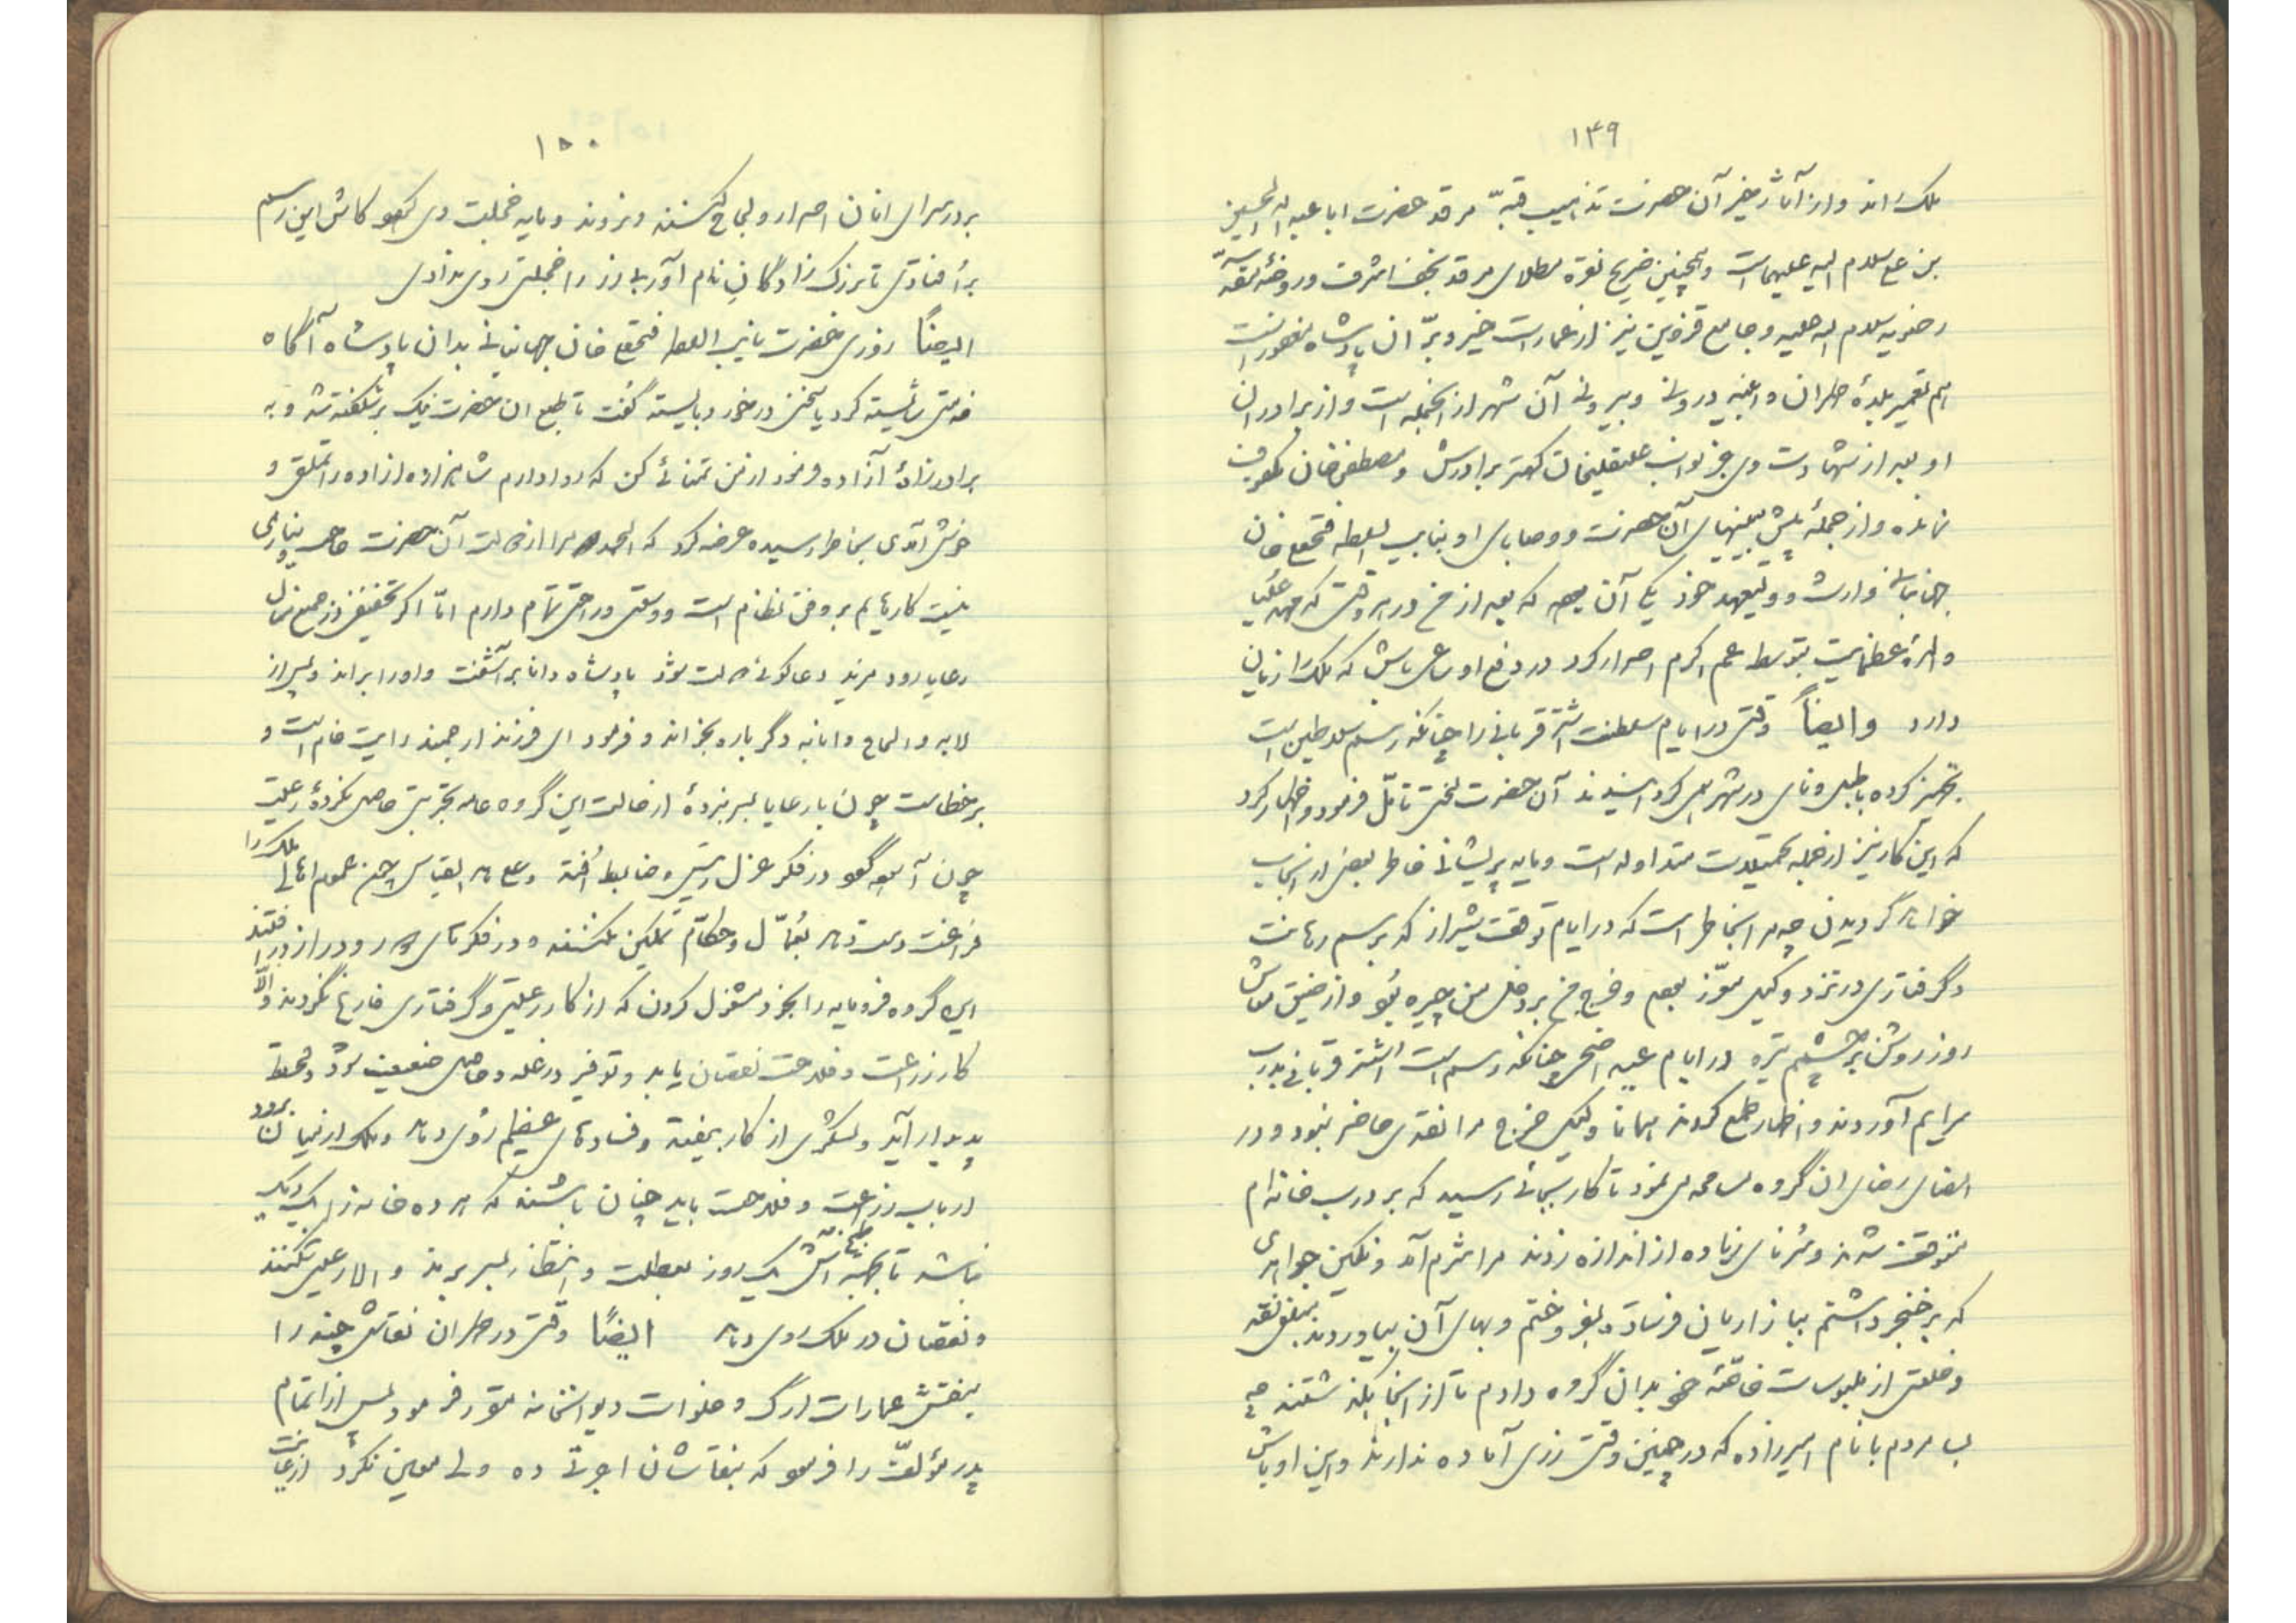 ۱۴۹
ملک راند و از آثار خیر آن حضرت تذهیب قبهٔ مرقد حضرت ابا عبدالله الحسین
بن علی سلام الله علیهماست و همچنین ضریح نقره مطلای مرقد نجف اشرف و روضهٔ مقدسهٔ
رضویه سلام الله علیه و جامع قزوین نیز از عمارات خیر و برّ آن پادشاه مغفور است
هم تعمیر بلدهٔ طهران و ابنیه درونی و بیرونی آن شهر از آنجمله است و از برادران
او بعد از شهادت وی جز نواب علیقلیخان کهتر برادرش و مصطفی خان مکفوف
نمانده و از جملهٔ پیش بینیهای آن حضرت و وصایای او بنایب السلطنه فتحعلی خان
جهانبانی وارث و ولیعهد خود یکی آن بود که بعد از من در هر وقت که مهد علیا
والدهٔ عظمایت بتوسط عم اکرم اصرار کرد در دفع او ساعی باش که ملک را زیان
دارد و ایضاً وقتی در ایام سلطنت اشتر قربانی را چنانکه رسم سلاطین است
تجهیز کرده با طبل و نای در شهر می گردانیدند آن حضرت لختی تأمّل فرمود و اظهار کرد
که این کار نیز از جمله تحمیلات متداوله است و مایه پریشانی خاطر بعضی از نجباء
خواهد گردیدن چه مرا بخاطر است که در ایام توقف شیراز که برسم رهانت
و گرفتاری در نزد وکیل معزز بودم و خرج من بر دخل من چیره بود و از ضیق معاش
روز روشن بر چشمم تیره در ایام عید اضحی چنانکه رسم است اشتر قربانی بدرب
سرایم آوردند و اظهار طمع کردند همانا وکیل خرج مرا نقدی حاضر نبود و در
ارضای ان گروه مسامحه می نمود تا کار بجائی رسید که بر درب خانه ام
متوقف شدند و سُرنای زیاده از اندازه زدند مرا شرم آمد و نگین جواهری
که بر خنجر داشتم ببازاریان فرستاده بفروختم و بهای آن بیاوردند مبلغی نقد
و خلعتی از ملبوسات خاصّهٔ خود بدان گروه دادم تا از آنجا بگذشتند چه
بسا مردم با نام امیرزاده که در چنین وقت زری آماده ندارند و این اوباش
۱۵۰
بر در سرای انان اصرار و لجاج کنند و نروند و مایه خجلت وی شود کاش این رسم
برافتادی تا بزرگ زادگانِ نام آور بی زر را خجلتی روی ندادی
ایضاً روزی حضرت نایب السلطنه فتحعلی خان جهانبانی بدان پادشاه آگاه
خدمتی شایسته کرد یا سخنی در خور و بایسته گفت تا طبع ان حضرت نیک برشکفته شد و به
برادرزادهٔ آزاده فرمود از من تمنائی کن که روا دارم شاهزاده ازاده را تملق و
خوش آمدی بخاطر رسیده عرضه کرد که الحمدلله مرا از دولت آن حضرت حاجت و نیازی
نیست کارهایم بر وفق نظام است و وسعتی و راحتی تمام دارم امّا اگر تخفیفی در جمع منال
رعایا رود مزید دعاگوئی دولت شود پادشاه دانا برآشفت و او را براند و پس از
لابه و الحاح دانایانه دگر باره بخواند و فرمود ای فرزند ارجمند رایت خام است و
بر خطاست چون با رعایا بسر نبردهٔ از حالت این گروه عامه تجربتی حاصل نکردهٔ رعیت
چون آسوده گردد در فکر عزل رئیس و ضابط اُفتد و علی هذا القیاس چون عموم اهالی ملک را
فراغت دست دهد بعُمّال و حکّام تمکین نکنند و در فکرهای دور و دراز درافتند
این گروه فرومایه را بخود مشغول کردن که از کار رعیتی و گرفتاری فارغ نگردند والّا
کار زراعت و فلاحت نقصان یابد و توفیر در غله و حاصل ضعیف شود و قحط
پدیدار آید و لشکری از کار بیفتد و فسادهای عظیم رُوی دهد و ملک از میان برود
ارباب زراعت و فلاحت باید چنان باشند که هر ده خانه را یک دیک
نباشد تا بجهة طبخ آش یک روز بعطلت و انتظار بسر برند و الا رعیتی نکنند
و نقصان در ملک روی دهد ایضاً وقتی در طهران نقاشی چند را
بنقش عمارات ارگ و خلوات دیوانخانه مقرر فرمود پس از اتمام
پدر مؤلف را فرمود که بنقاشان اجرتی ده ولی معین نکرد از غایت